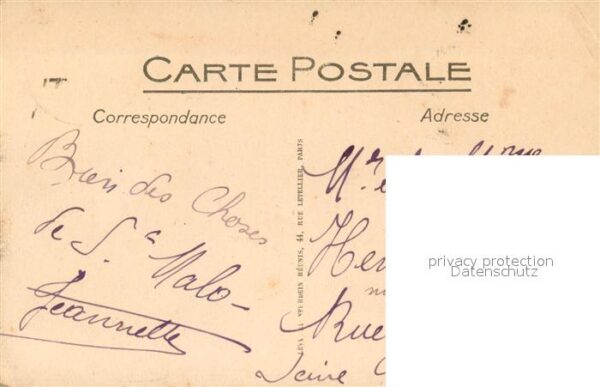 CARTE POSTALE
Correspondance
Adresse
des Choses
de St Malo -
Jeannette
44, RUE LETELLIER, PARIS
Mr et Mme
Rue
Seine
privacy protection
Datenschutz